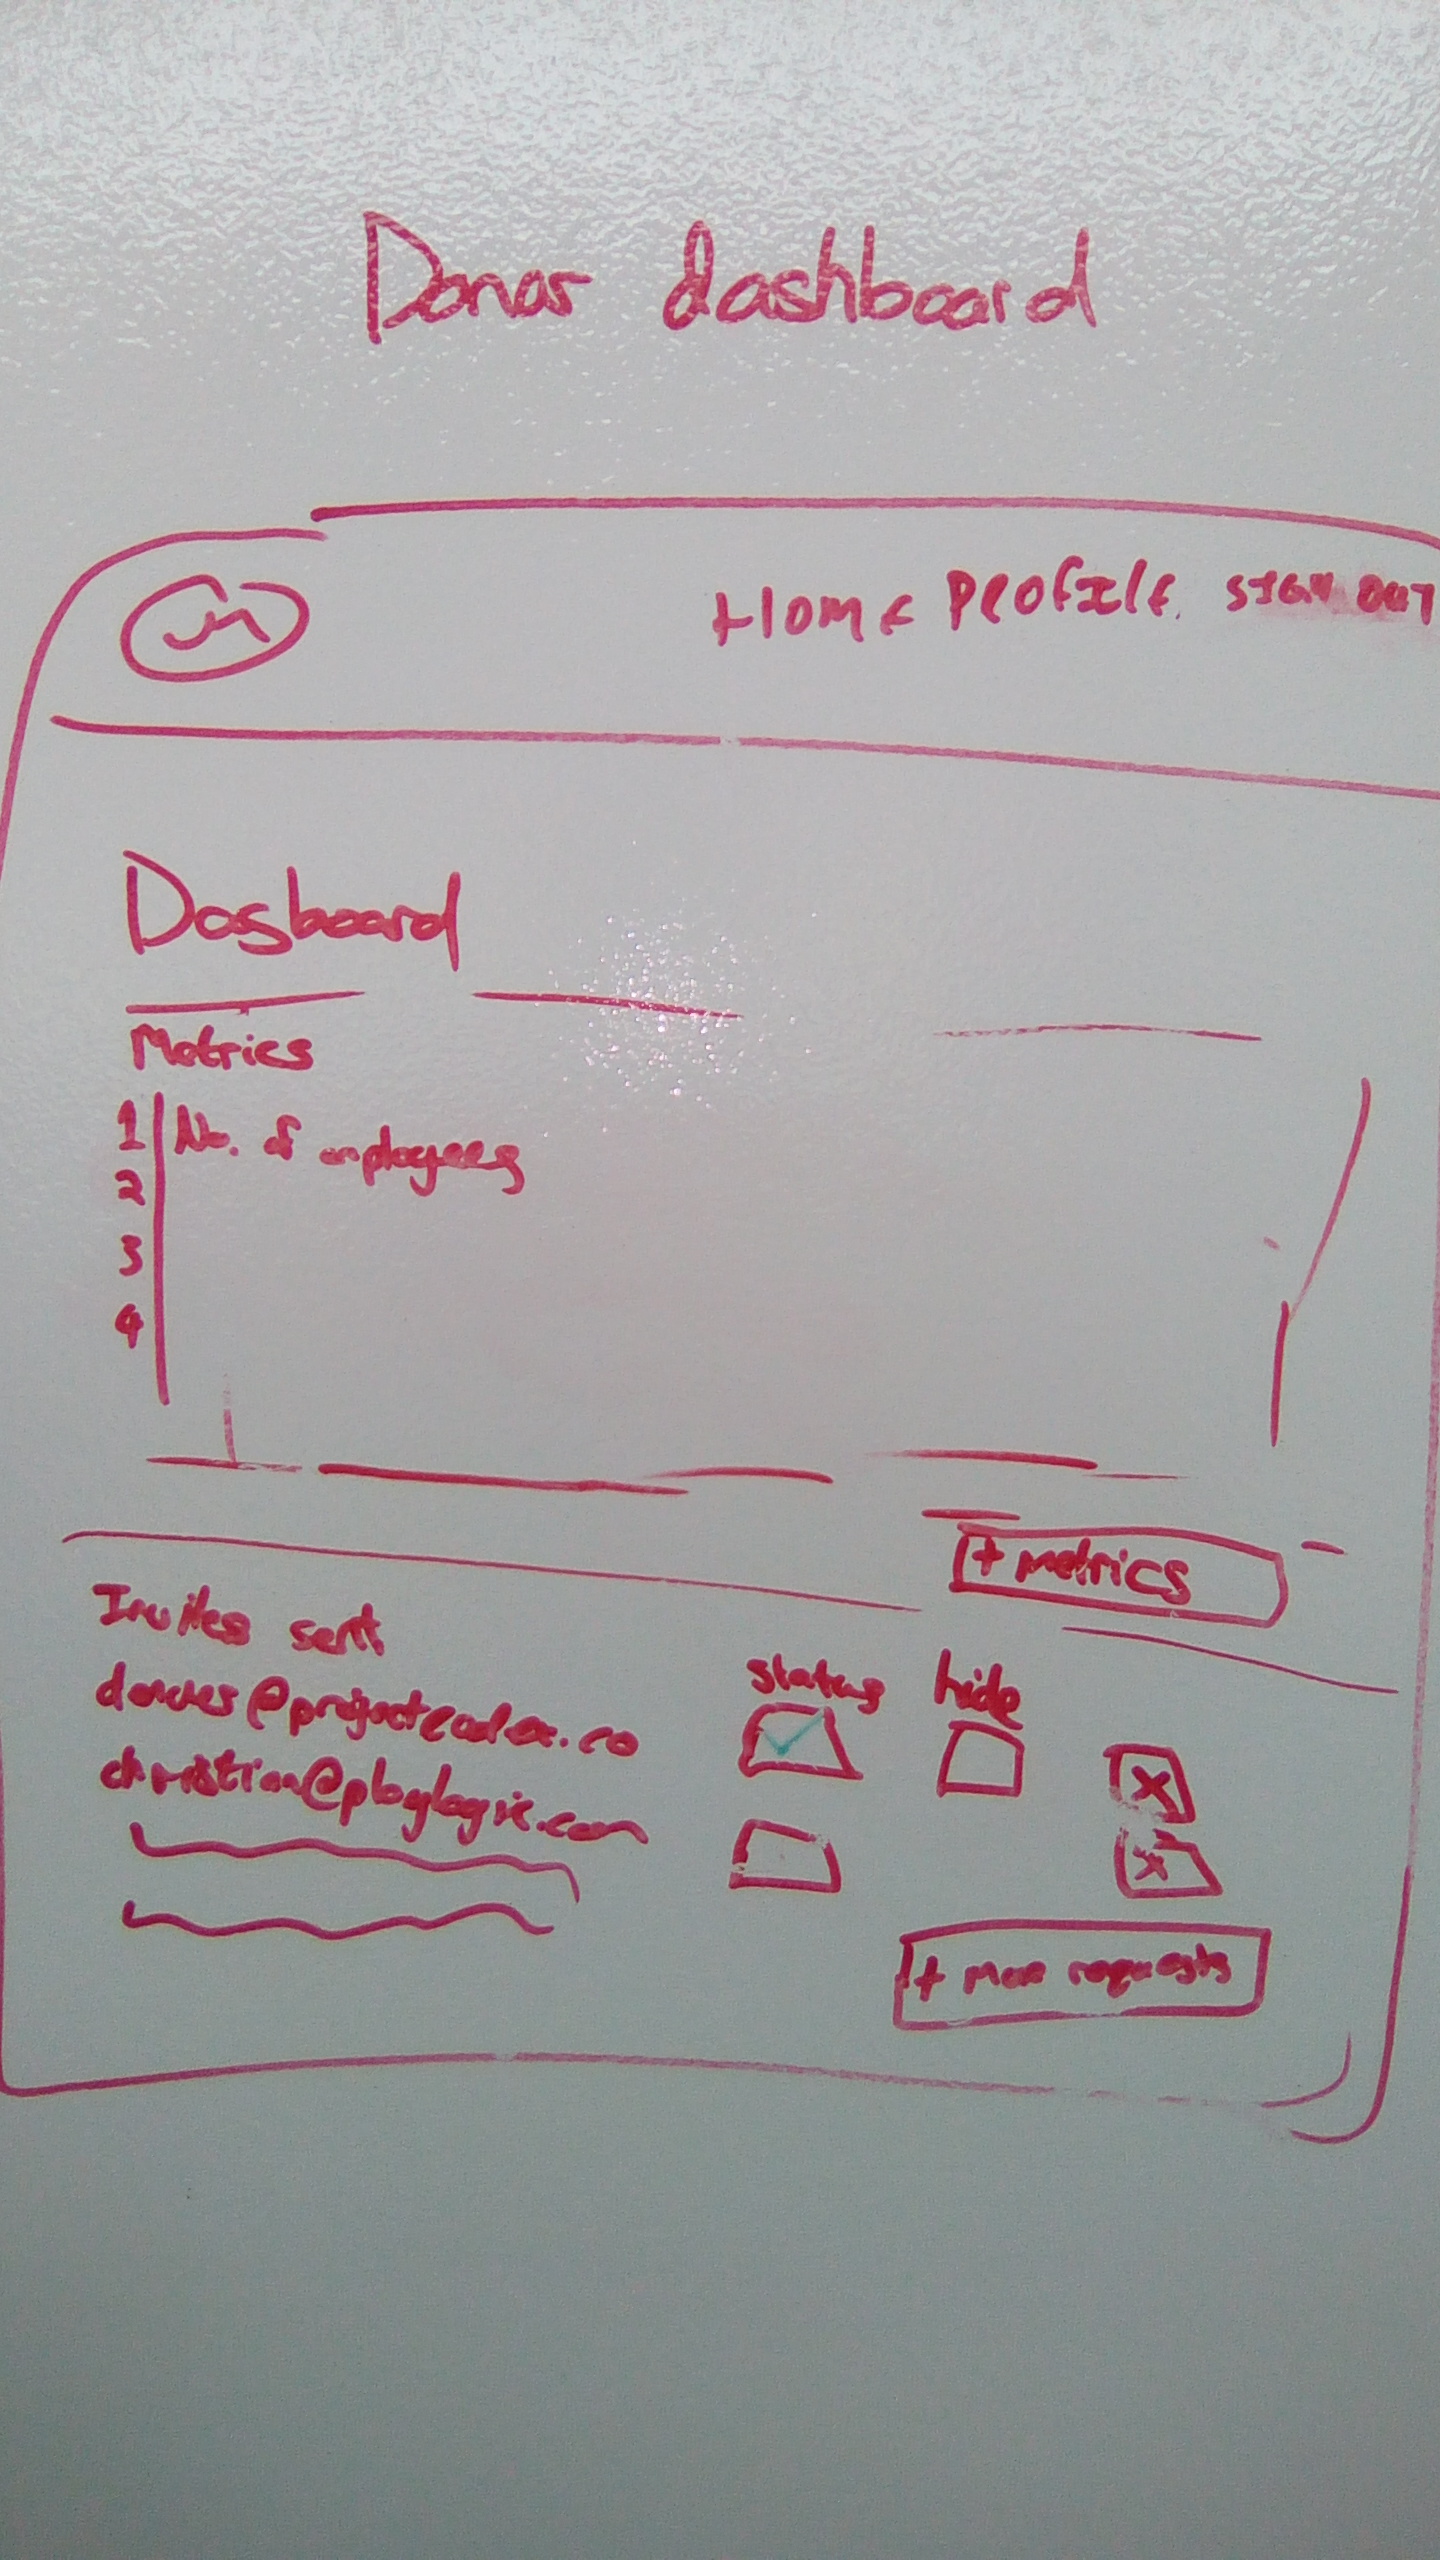 Donor dashboard
Home Profile Sign out
Dasboard
Metrics
1 No. of employees
2
3
4
+ metrics
Invites sent
status hide
@projectcodex.co
christian@ploylogic.com
X
X
+ More requests